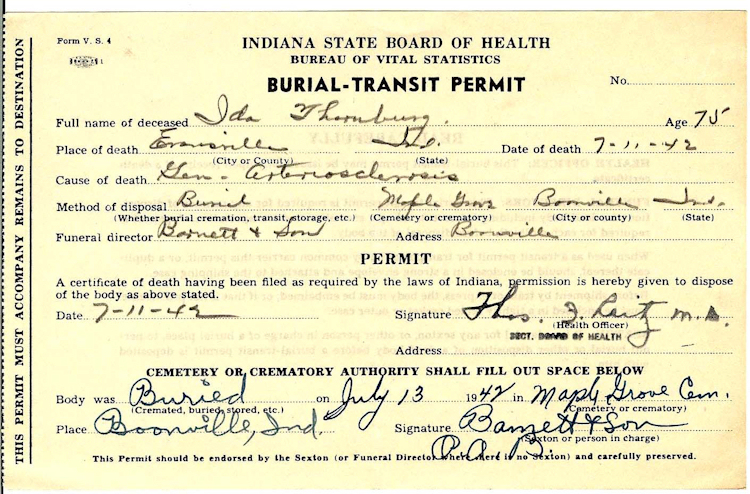 Form V. S. 4
INDIANA STATE BOARD OF HEALTH
BUREAU OF VITAL STATISTICS
BURIAL-TRANSIT PERMIT
No.
Full name of deceased Ida Thornburg. Age 75
Place of death Evansville Ind. Date of death 7-11-42
(City or County) (State)
Cause of death Gen- Arteriosclerosis
Method of disposal Burial Maple Grove Boonville Ind.
(Whether burial cremation, transit, storage, etc.) (Cemetery or crematory) (City or county) (State)
Funeral director Barnett & Son Address Boonville
PERMIT
A certificate of death having been filed as required by the laws of Indiana, permission is hereby given to dispose
of the body as above stated.
Date 7-11-42 Signature Thos. J. Reitz M.D.
(Health Officer)
SECT. BOARD OF HEALTH
Address
CEMETERY OR CREMATORY AUTHORITY SHALL FILL OUT SPACE BELOW
Body was Buried on July 13 1942 in Maple Grove Cem.
(Cremated, buried, stored, etc.) (Cemetery or crematory)
Place Boonville, Ind. Signature Barnett & Son
(Sexton or person in charge)
P.A.B.
This Permit should be endorsed by the Sexton (or Funeral Director where there is no Sexton) and carefully preserved.
THIS PERMIT MUST ACCOMPANY REMAINS TO DESTINATION